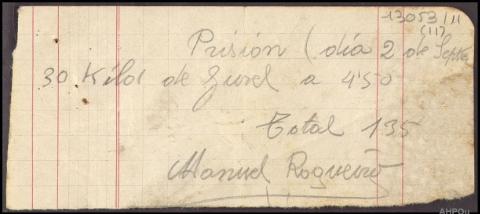 13053/11
(11)
Prisión (día 2 de Septe
30 Kilos de Jurel a 4'50
Total 135
Manuel Rogueiro
AHPOu